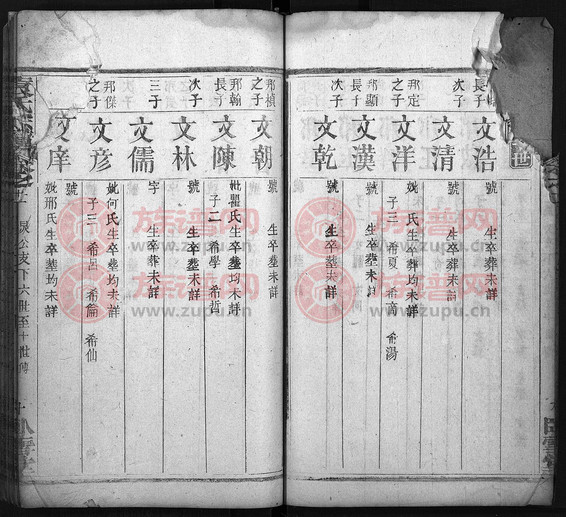 世
長
文浩
號
生卒葬未詳
次子
文清
號
生卒葬未詳
邦定
之子
文洋
號
妣氏生卒葬均未詳
子三 希夏 希商 希湯
邦顯
長子
文漢
號
生卒葬未詳
次子
文乾
號
生卒葬未詳
邦楨
之子
文朝
號
生卒葬未詳
邦翰
長子
文陳
妣瞿氏生卒葬均未詳
子二 希學 希哲
次子
文林
號
生卒葬未詳
三子
文儒
字
生卒葬未詳
邦傑
之子
文彥
妣何氏生卒葬均未詳
子三 希呂 希倫 希仙
文庠
號
妣邢氏生卒葬均未詳
公支下六世至十世傳
臥雪堂
族谱网
www.zupu.cn
族谱网
www.zupu.cn
族谱网
www.zupu.cn
族谱网
www.zupu.cn